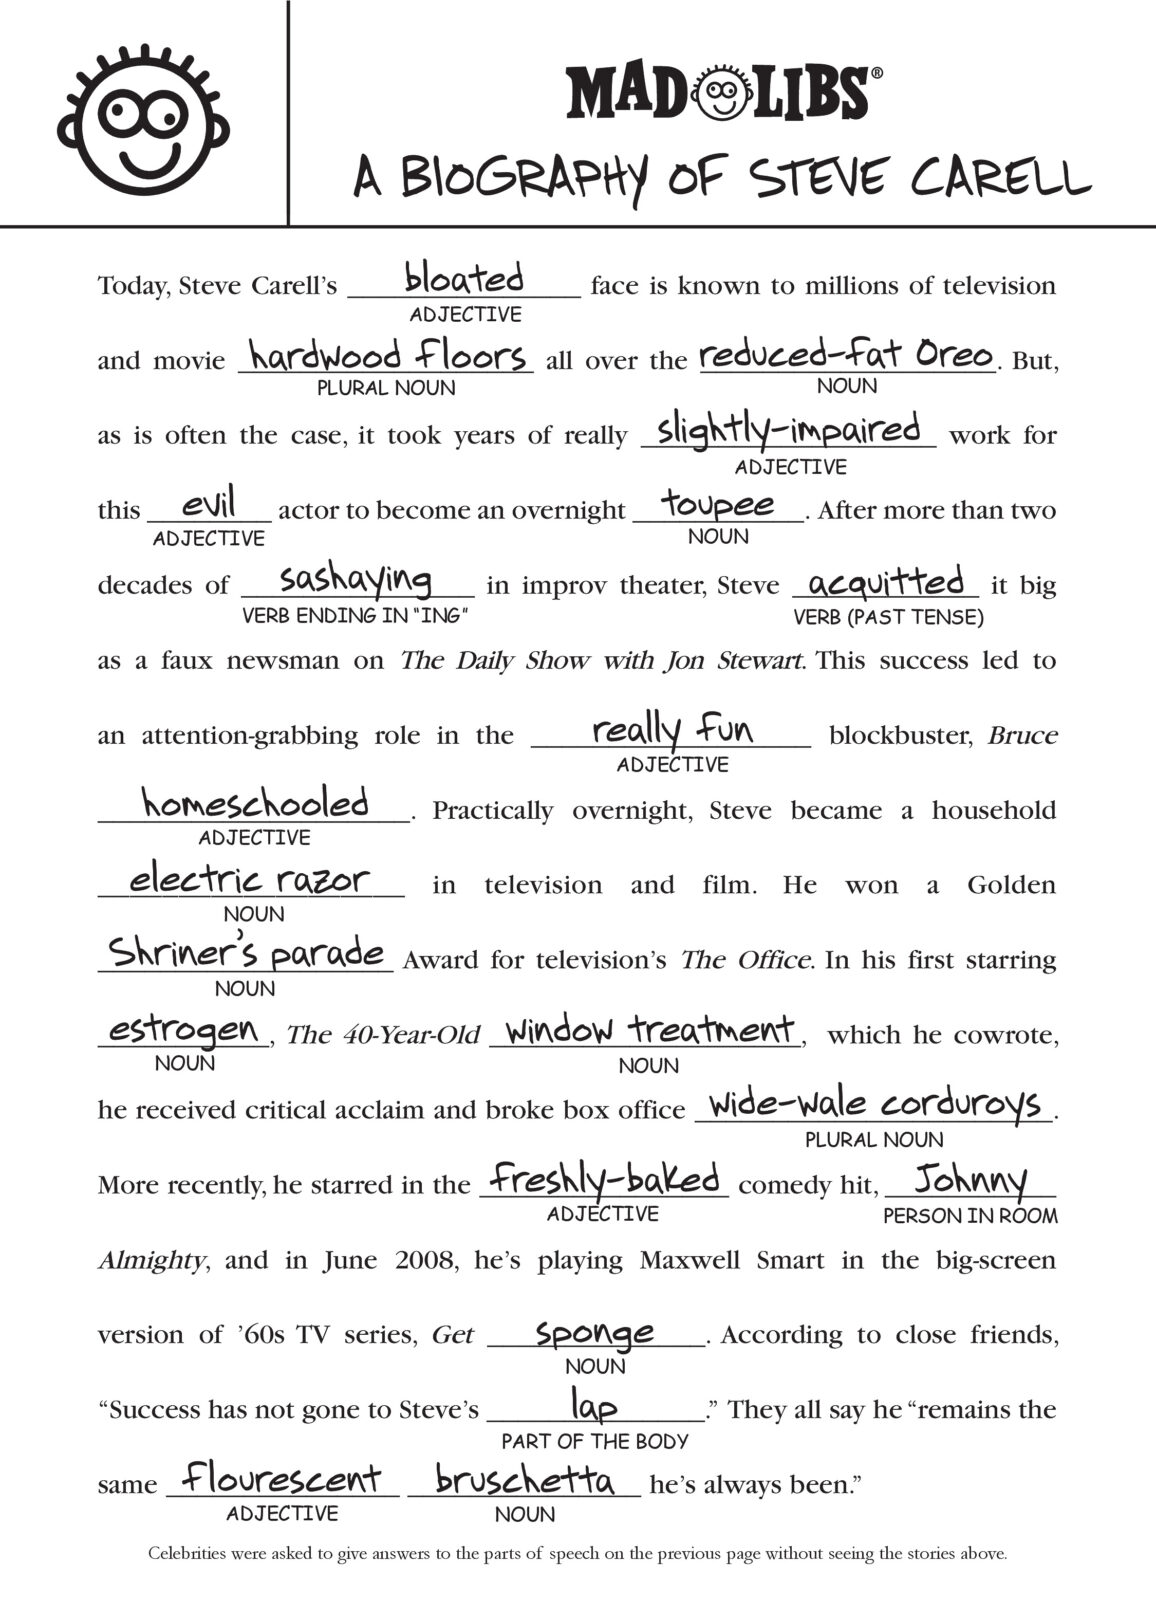 MAD LIBS®
A BIOGRAPHY OF STEVE CARELL
Today, Steve Carell's bloated face is known to millions of television
ADJECTIVE
and movie hardwood floors all over the reduced-fat Oreo. But,
PLURAL NOUN NOUN
as is often the case, it took years of really slightly-impaired work for
ADJECTIVE
this evil actor to become an overnight toupee. After more than two
ADJECTIVE NOUN
decades of sashaying in improv theater, Steve acquitted it big
VERB ENDING IN "ING" VERB (PAST TENSE)
as a faux newsman on The Daily Show with Jon Stewart. This success led to
an attention-grabbing role in the really fun blockbuster, Bruce
ADJECTIVE
homeschooled. Practically overnight, Steve became a household
ADJECTIVE
electric razor in television and film. He won a Golden
NOUN
Shriner's parade Award for television's The Office. In his first starring
NOUN
estrogen, The 40-Year-Old window treatment, which he cowrote,
NOUN NOUN
he received critical acclaim and broke box office wide-wale corduroys.
PLURAL NOUN
More recently, he starred in the freshly-baked comedy hit, Johnny
ADJECTIVE PERSON IN ROOM
Almighty, and in June 2008, he's playing Maxwell Smart in the big-screen
version of '60s TV series, Get sponge. According to close friends,
NOUN
"Success has not gone to Steve's lap." They all say he "remains the
PART OF THE BODY
same flourescent bruschetta he's always been."
ADJECTIVE NOUN
Celebrities were asked to give answers to the parts of speech on the previous page without seeing the stories above.